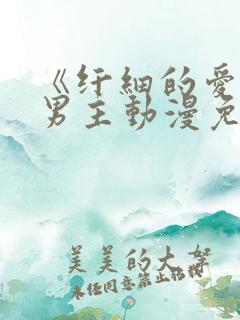 《纤細的愛
男主動漫免
美美的大奔
未经同意禁止转载